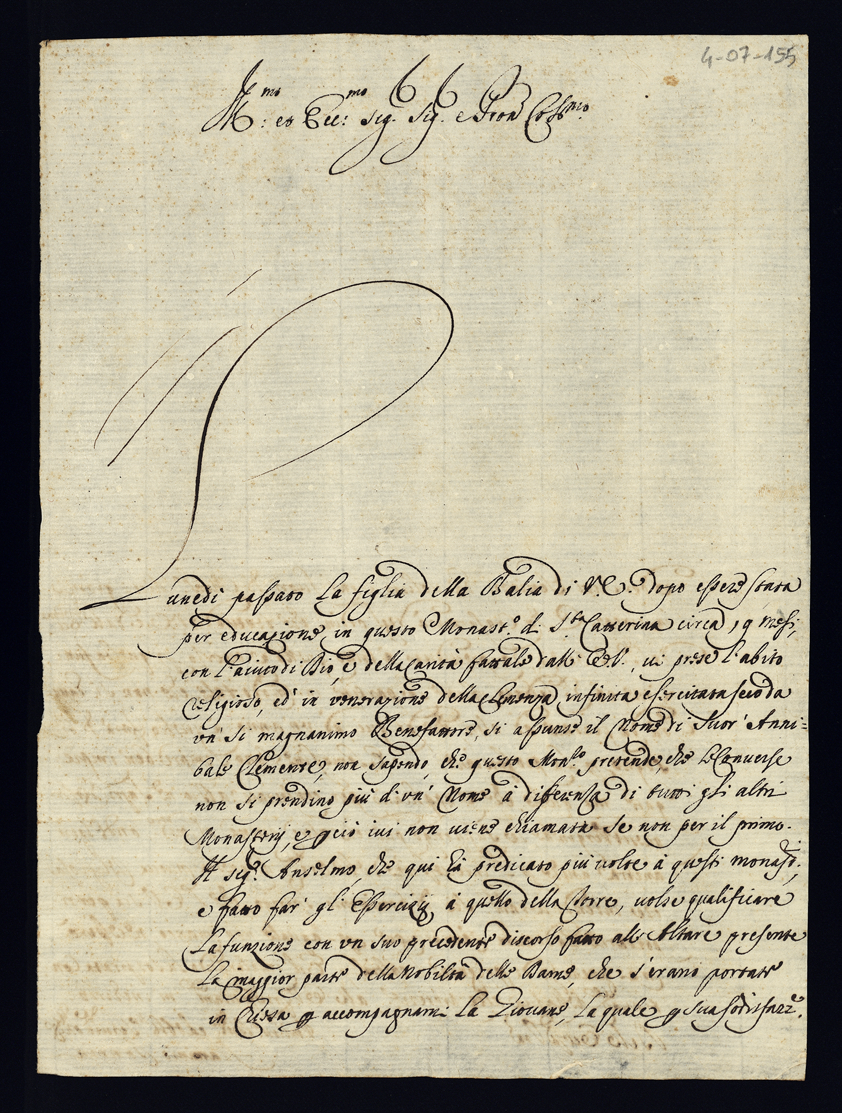 4-07-155
Ill.mo et Ecc.mo Sig. Sig. e Pron Col.mo
Lunedi passato La figlia della Balia di V. E. dopo essere stata
per educazione in questo Monast.o di S.ta Catterina circa 19 mesi,
con l'aiuto di Dio, e della Carità fattale dall' E. V., ui prese l'abito
religioso, ed' in venerazione della Clemenza infinita esercitata seco da
vn' si magnanimo Benefattore, si assunse il Nome di Suor' Anni=
bale Clemente, non sapendo, che questo Mon.ro pretende, che le Converse
non si prendino più d' vn' Nome à differenza di tutti gli altri
Monasterij, e p ciò iui non uiene chiamata se non per il primo.
Il sig.r Anselmo, che qui hà predicato più uolte à questi monast.i,
e fatto far' gl' Essercizij à quello della Torre, uolse qualificare
La funzione con vn suo precedente discorso fatto all' Altare presente
La maggior parte della Nobiltà delle Dame, che s'erano portate
in Chiesa p accompagnarui La Giouane, La quale p sua sodisfazz.e